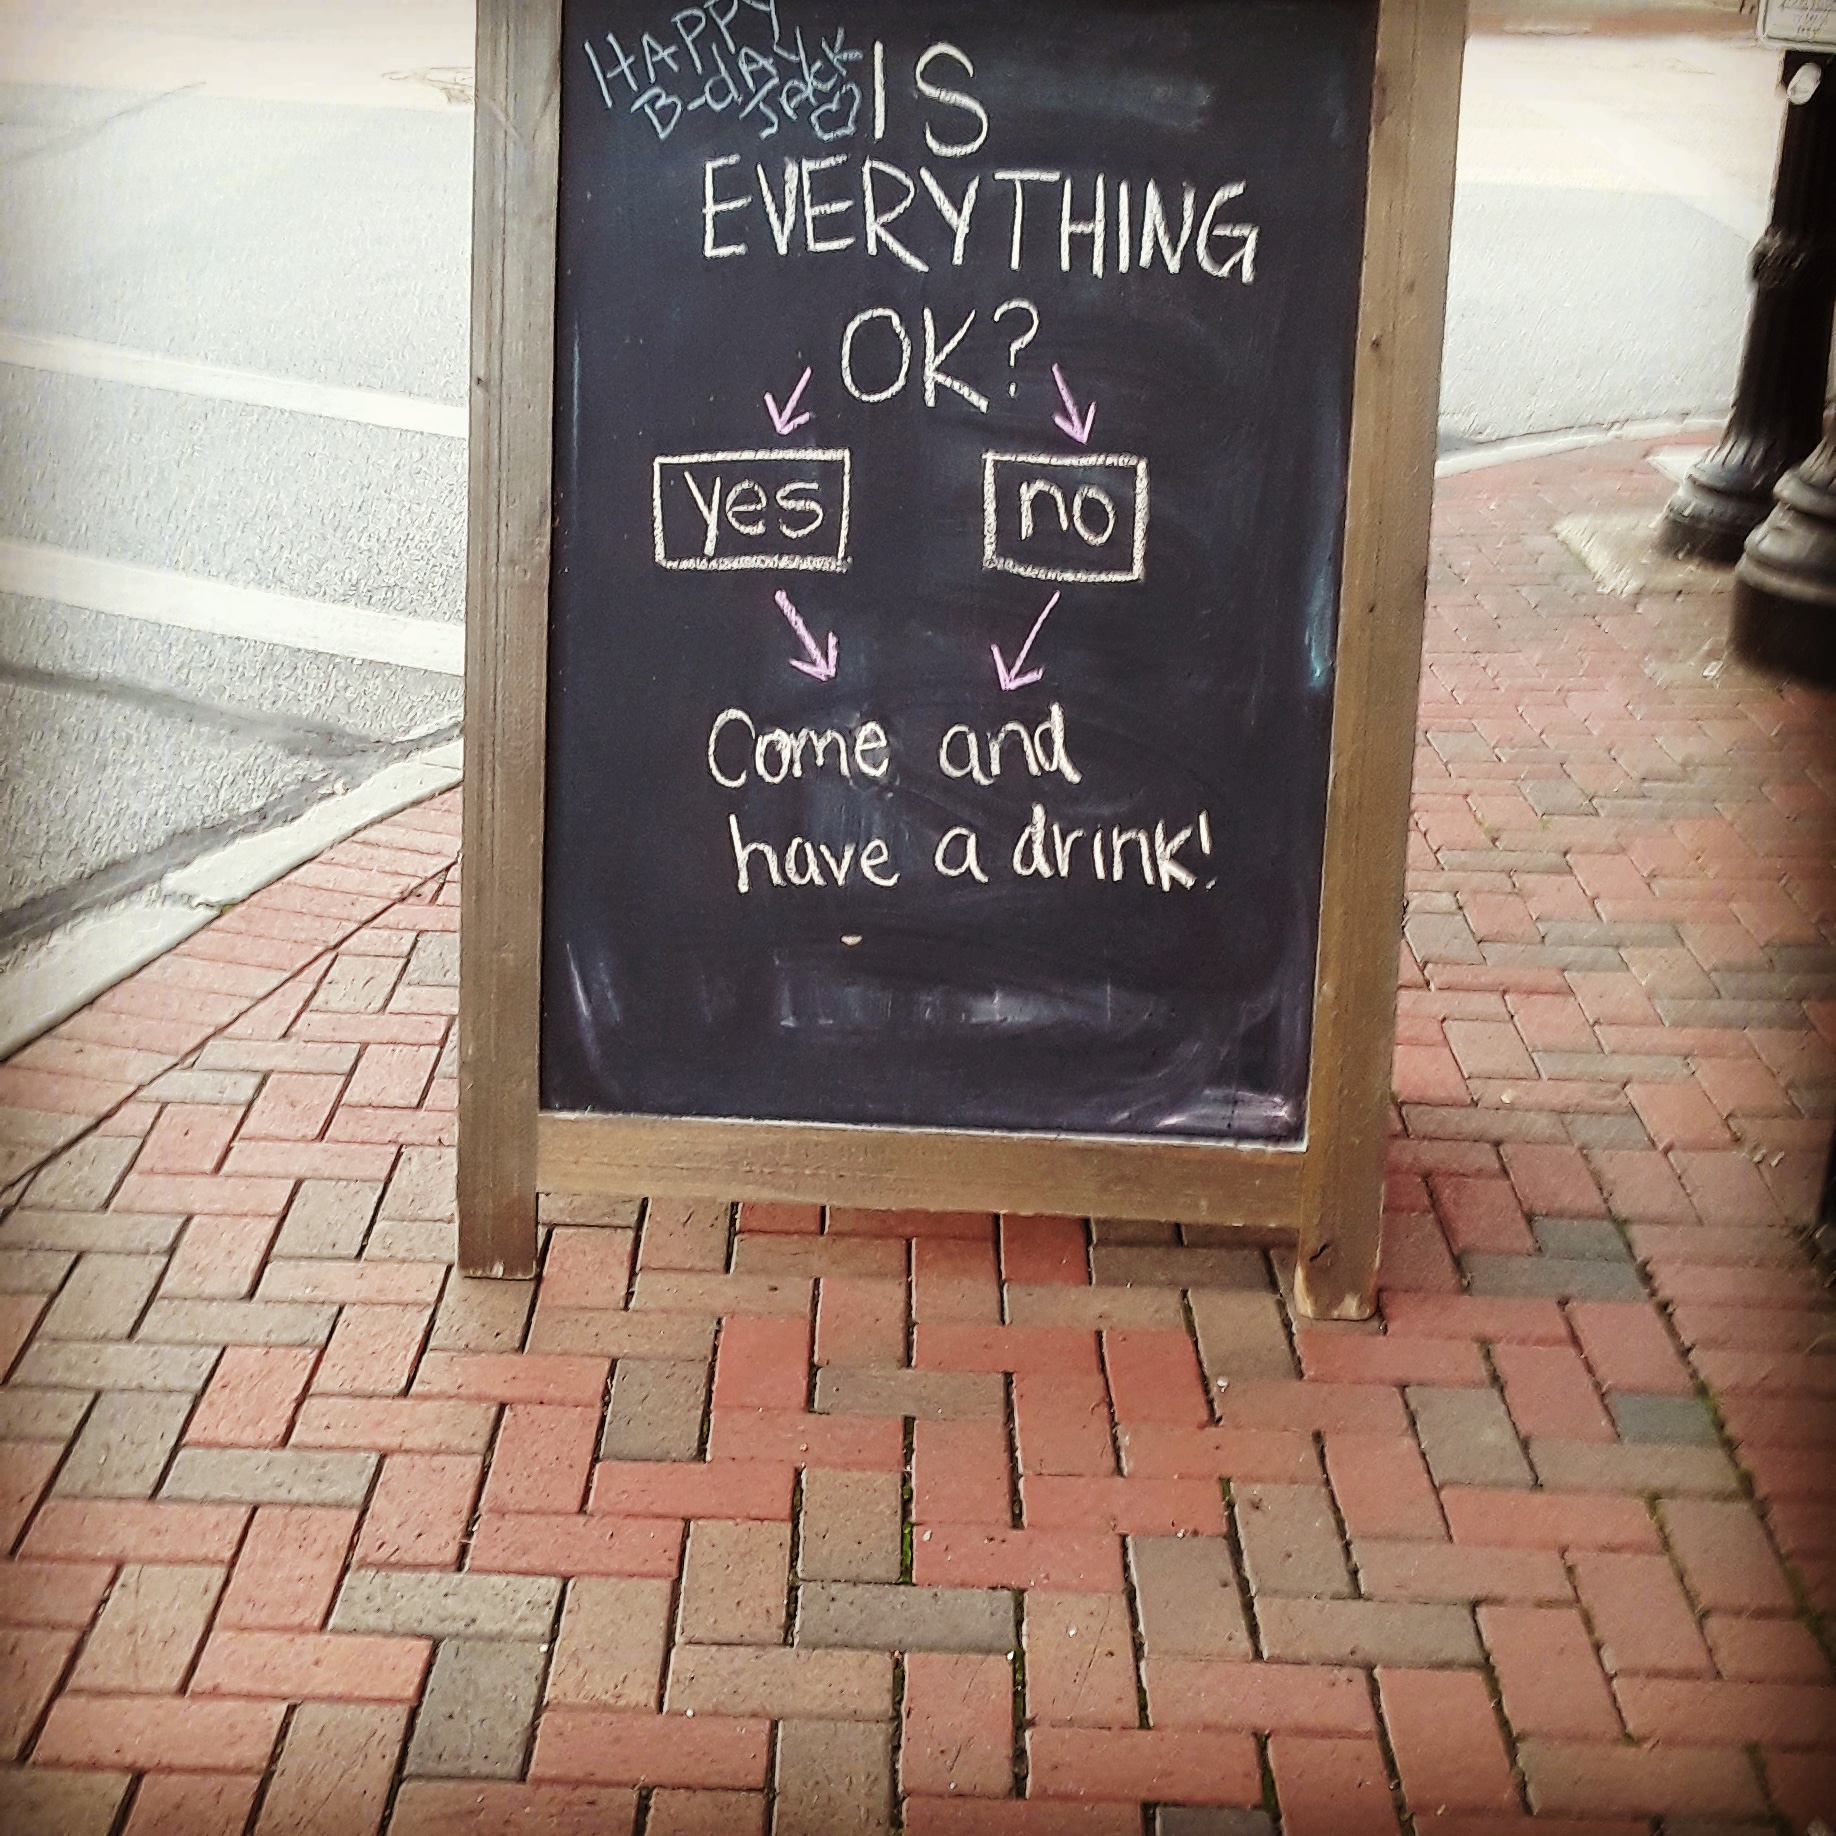 HAPPY
B-dAY
JACK
IS
EVERYTHING
OK?
yes no
Come and
have a drink!